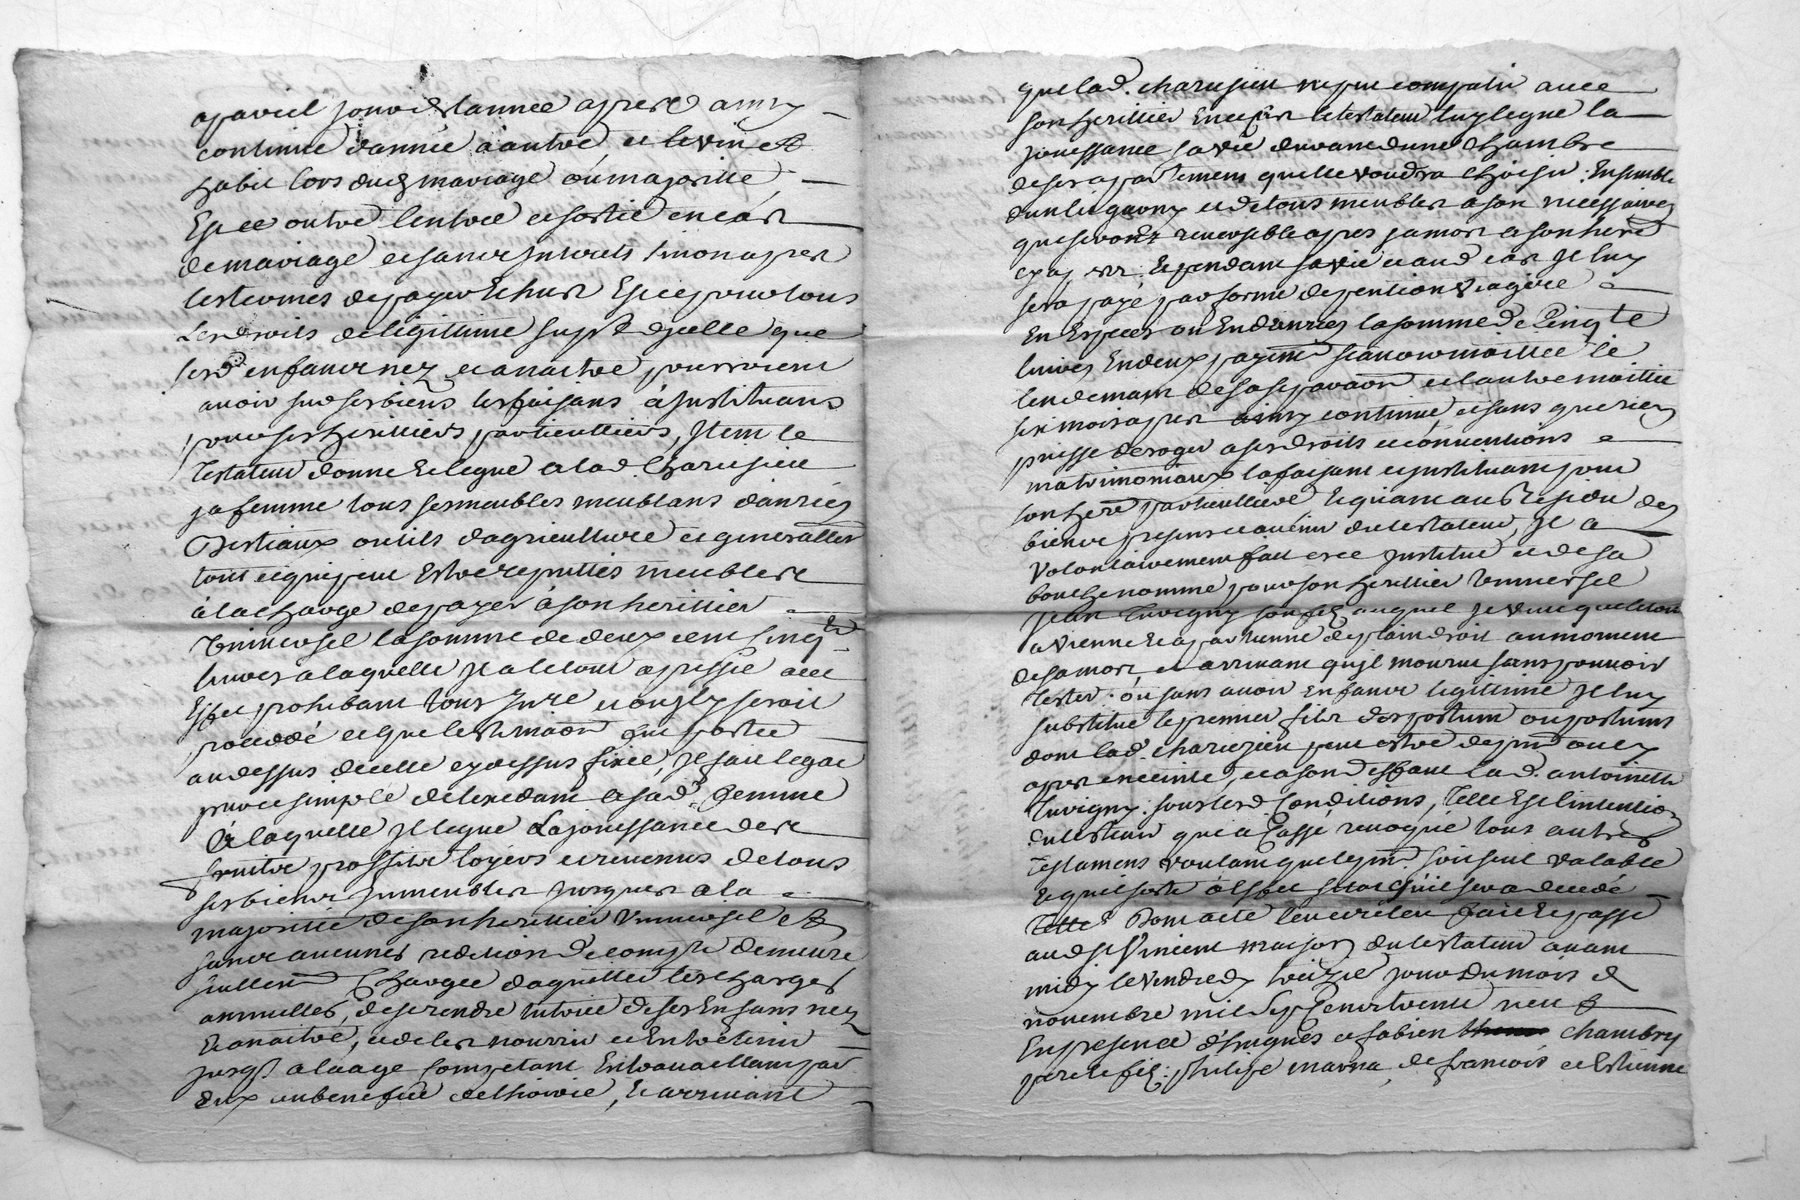 apareil jour de lannee apres ainsy
continué dannée a autre, et le vin et
habit lors dud mariage ou majorité,
Et ce outre lentrée et sortie en cas
de mariage et sance jnterets sinon apres
les termes de payer Echus Et ce pour tous
Les droits de legittime supt dicelle que
sesd enfance nez et a naitre pourroient
avoir sur ses biens les faisans & jnstituans
pour ses herittiers particulliers, Jtem le
Testateur donne Et legue a lad Charusieu
sa femme tous ses meubles meublans danrées
Bestiaux outils dagriculture et generallem
tout ce qui peut Estre reputtés meubles
a la charge de payer a son herittier
Vniversel la somme de deux cent Cinqte
livres a laquelle jl a le tout apressié avec
Effet prohibant tous jnre et ou jl y seroit
procedé et que lestimaon fut portée
au dessus de celle cy dessus fixée, jl fait legat
pur et simple de lexedant a sad. femme
A laquelle jl legue La jouissance des
fruits proffits loyers et revenus de tous
ses biens jmmeubles jusques a la
majorité de son herittier Vniversel et
sance aucunes redition de compte demeure
seullemt Chargée daquitter les charges
annuelles, de se rendre tutrice de ses Enfans nez
Et a naitre, et de les nourrir et Entretenir
jusqt a la age Competant En travaillant par
Eux au benefice de lhoirie, Et arrivant
que lad. charusieu ne put compatir avec
son herittier En ce cas le testateur luy legue la
jouissance sa vie durant dune chambre
de ses apartement quelle voudra choisir. Ensemble
dun lit garny et de tous meubles a son necessaires
que seront reversible apres sa mort a son here
Et pendant sa vie et aud cas Jl luy
sera payé par forme de pention viagere
En Especes ou En danrées la somme de Cinqte
livres En deux payemt scavoir moittié le
lendemain de la separaon et lautre moittié
six mois apres ainsy continué et sans que rien
puisse deroger a ses droits et conventions
matrimoniaux la faisant et jnstituant pour
son here particulliere Et quant au Residu des
biens presens et avenir du testateur, Jl a
volontairement fait cree jnstitué et de sa
bouche nommé pour son herittier Vniversel
Jean Luvigny son fils auquel je veut que le tout
avienne Et apartienne de plain droit au moment
de sa mort, et arrivant quil mourut sans pouvoir
tester. ou sans avoir Enfance legittime Jl luy
substitue le premier fils des postum ou postums
dont lad. charuzieu peut estre de pnt ou cy
apres enceinte, et a son deffaut lad. antoinette
Luvigny. sous lesd Conditions, Telle Est lintention
du testateur que a Cassé revoqué tous autres
Testamens voulant que le pnt. soit seul valable
Et quil sorte a Effet
Dont acte fait Et passé
aud st Vincent maison du testateur avant
midy le vendredy treizie jour du mois de
novembre mil sept Cent trente neuf
En presence dhugues et fabien chambry
pere et fils. philipe marna, de francois et Estienne